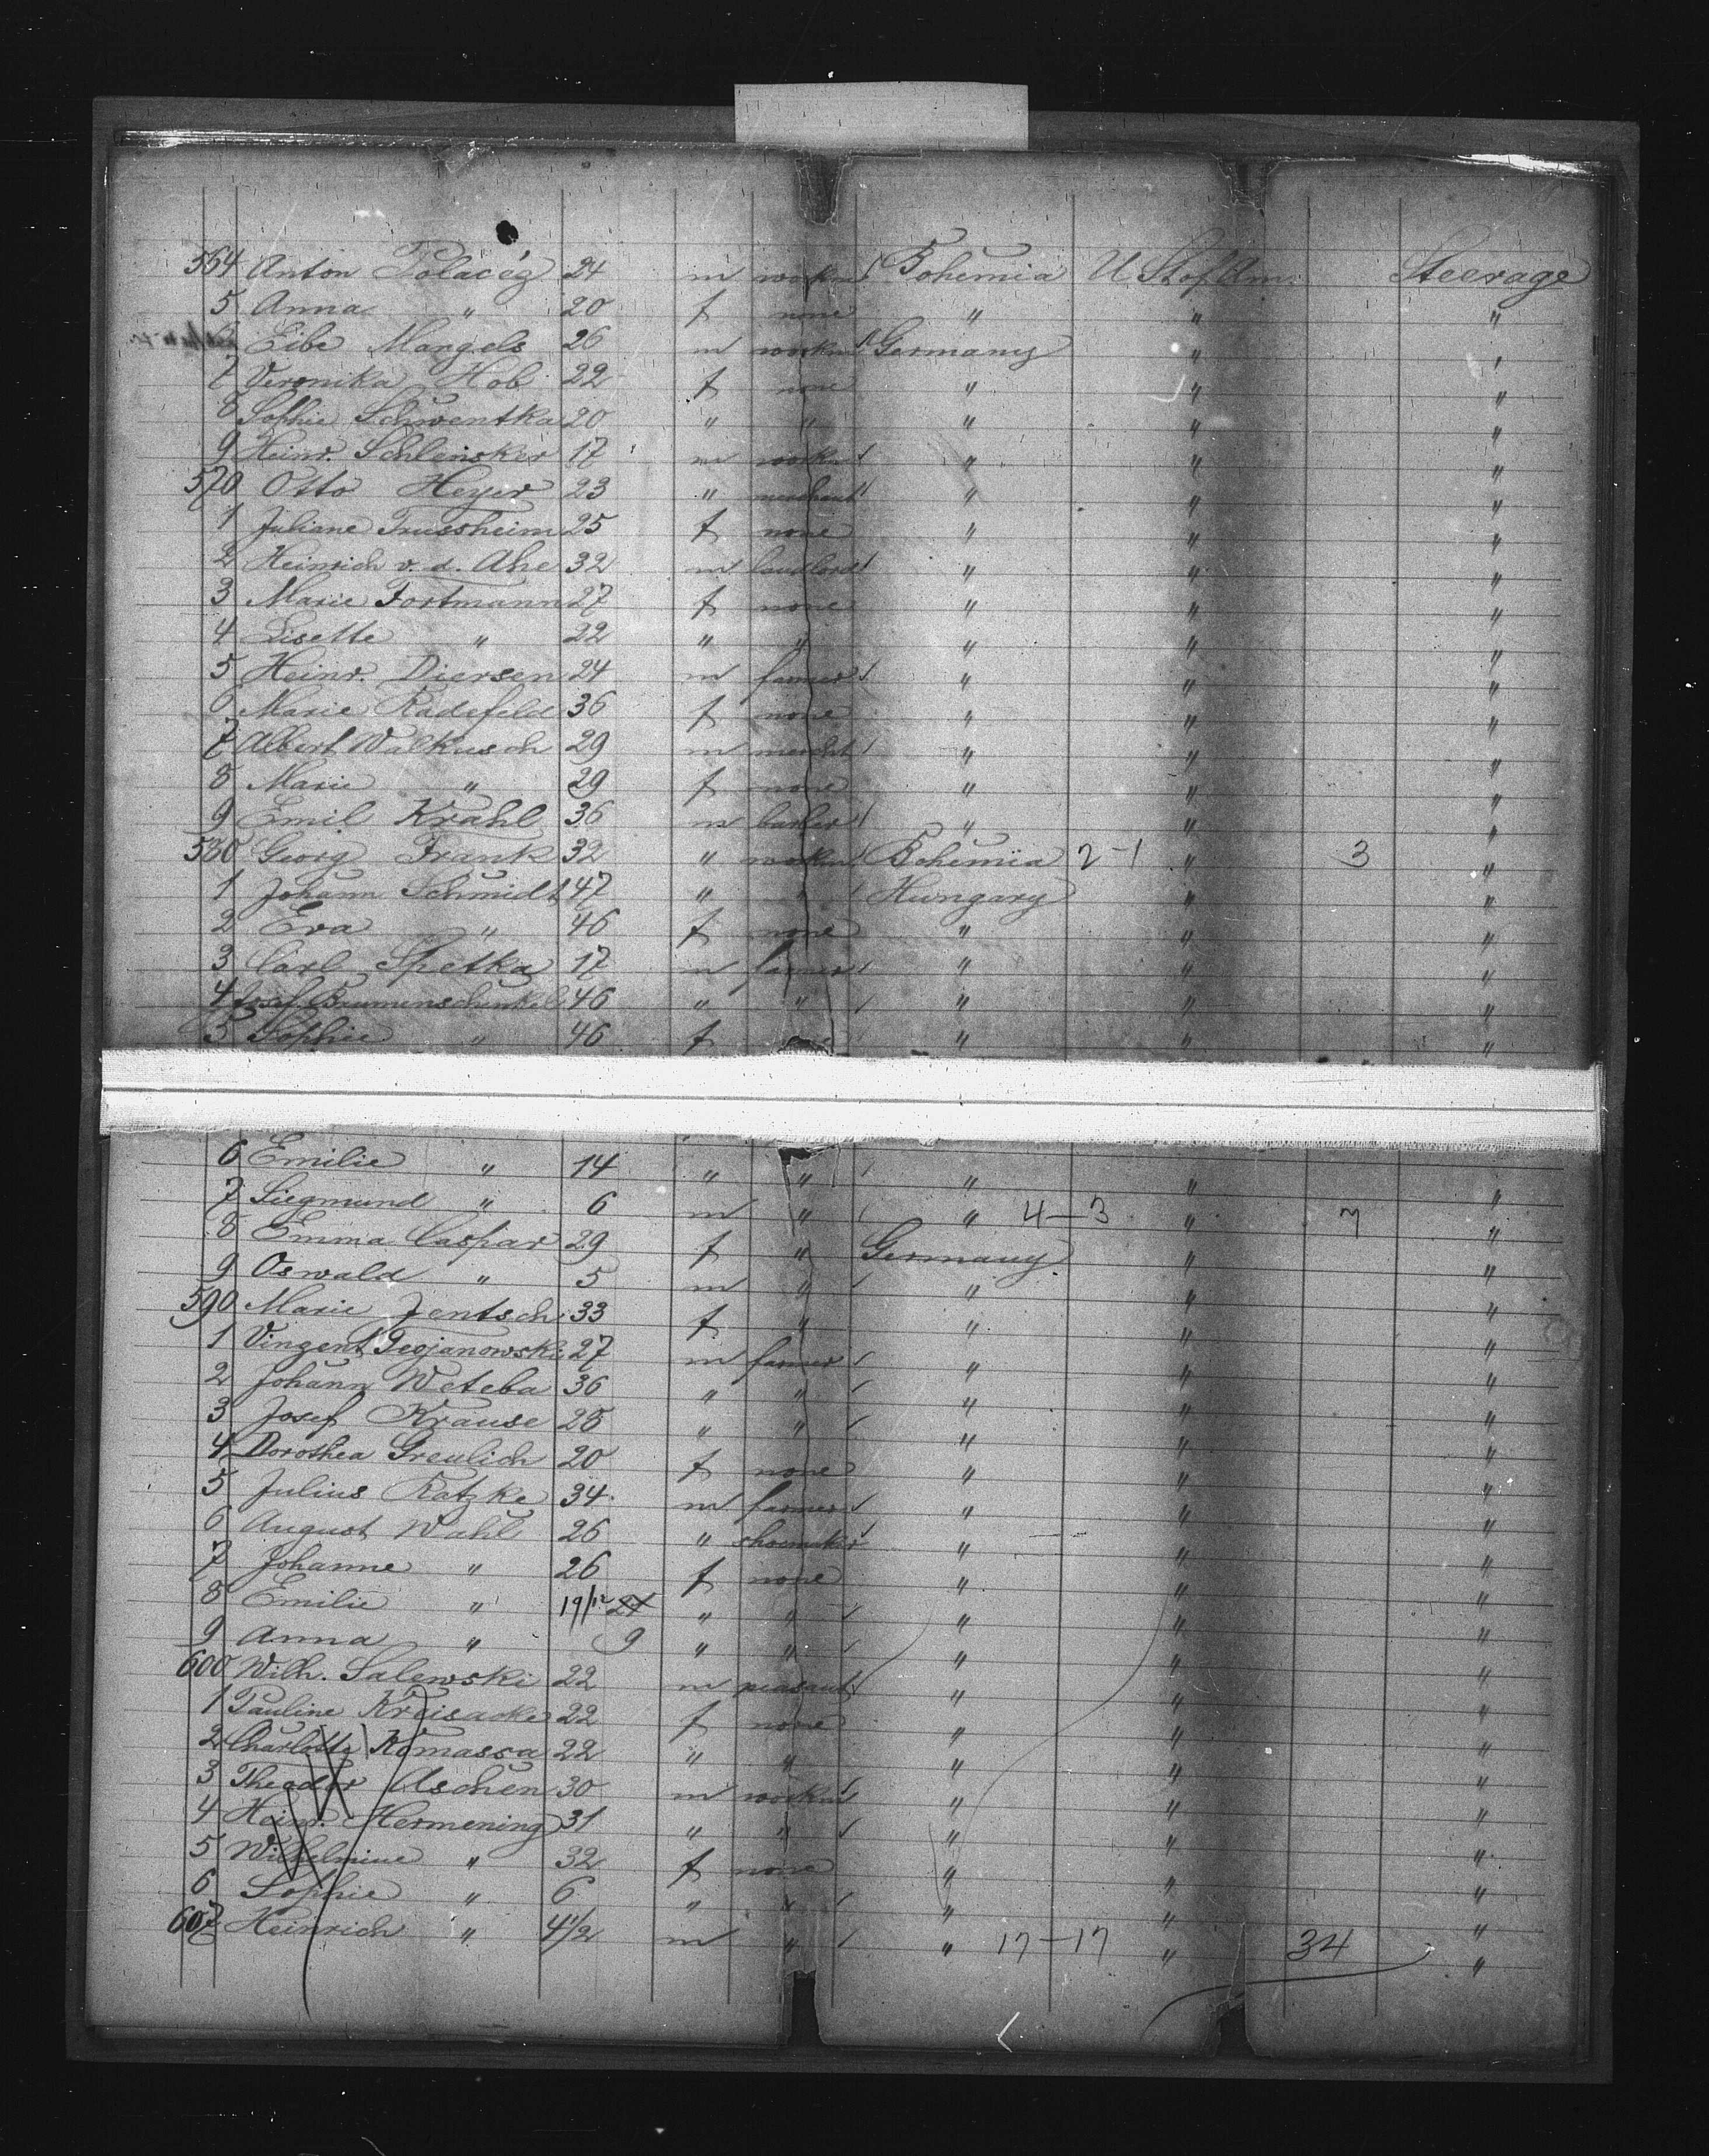 564 Anton Polaceg 24 m workm Bohemia U. St of Am. Steerage
5 Anna " 20 f none " " "
6 Eibe Mangels 26 m workm Germany " "
7 Veronika Hob 22 f none " " "
8 Sophie Schwentka 20 " " " " "
9 Heinr. Schlensker 17 m workm " " "
570 Otto Heyer 23 " merchant " " "
1 Juliane Trussheim 25 f none " " "
2 Heinrich v. d. Ahe 32 m landlord " " "
3 Marie Fortmann 27 f none " " "
4 Lisette " 22 " " " " "
5 Heinr. Diersen 24 m farmer " " "
6 Marie Radefeld 36 f none " " "
7 Albert Walkusch 29 m mercht " " "
8 Marie " 29 f none " " "
9 Emil Krahl 36 m " " "
580 Georg Frank 32 " workm Bohemia 2-1 " 3 "
1 Johann Schmidt 47 " " Hungary " "
2 Eva " 46 f none " " "
3 Carl Spetka 17 m farmer " " "
4 Josef Brumenschenkel 46 " " " " "
5 Sophie " 46 f " " "
6 Emilie " 14 " " " " "
7 Siegmund " 6 m " " 4-3 " 7 "
8 Emma Caspar 29 f " Germany " "
9 Oswald " 5 m " " " "
590 Marie Jentsch 33 f " " " "
1 Vinzent 27 m farmer " " "
2 Johann Weteba 36 " " " " "
3 Josef Krause 28 " " " " "
4 Dorothea Greulich 20 f none " " "
5 Julius Ratzke 34 m farmer " " "
6 August Wahl 26 " shoemaker " " "
7 Johanne " 26 f none " " "
8 Emilie " 19/12 " " " " "
9 Anna " 9 " " " " "
600 Wilh. Salewski 22 m peasant " " "
1 Pauline Kreisacke 22 f none " " "
2 Charlotte Komassa 22 " " " " "
3 Theodor Aschen 30 m workm " " "
4 Heinr. Hermening 31 " " " " "
5 Wilhelmine " 32 f none " " "
6 Sophie " 6 " " " " "
607 Heinrich " 4 1/2 m " " 17-17 " 34 "